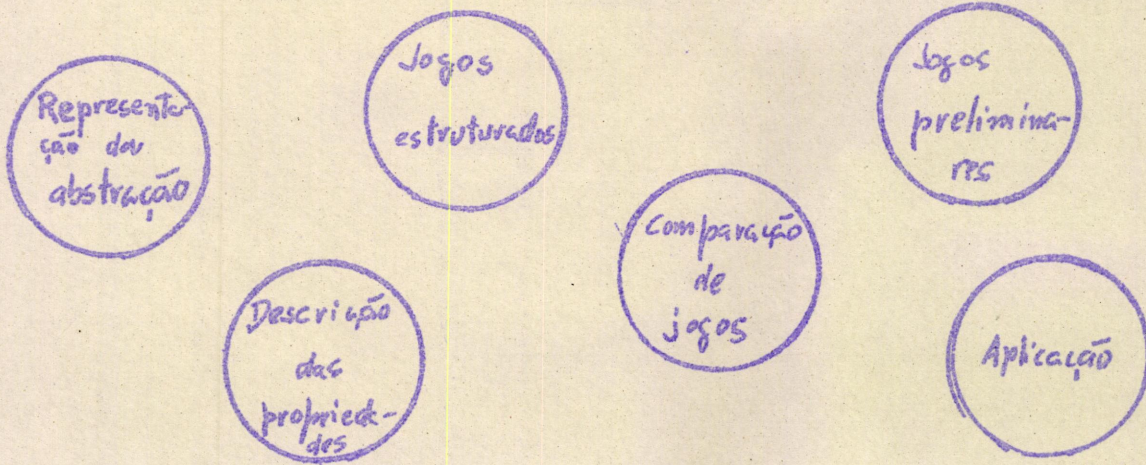 Representa-
ção da
abstração
Jogos
estruturados
Jogos
prelimina-
res
Comparação
de
jogos
Descrição
das
proprieda-
des
Aplicação